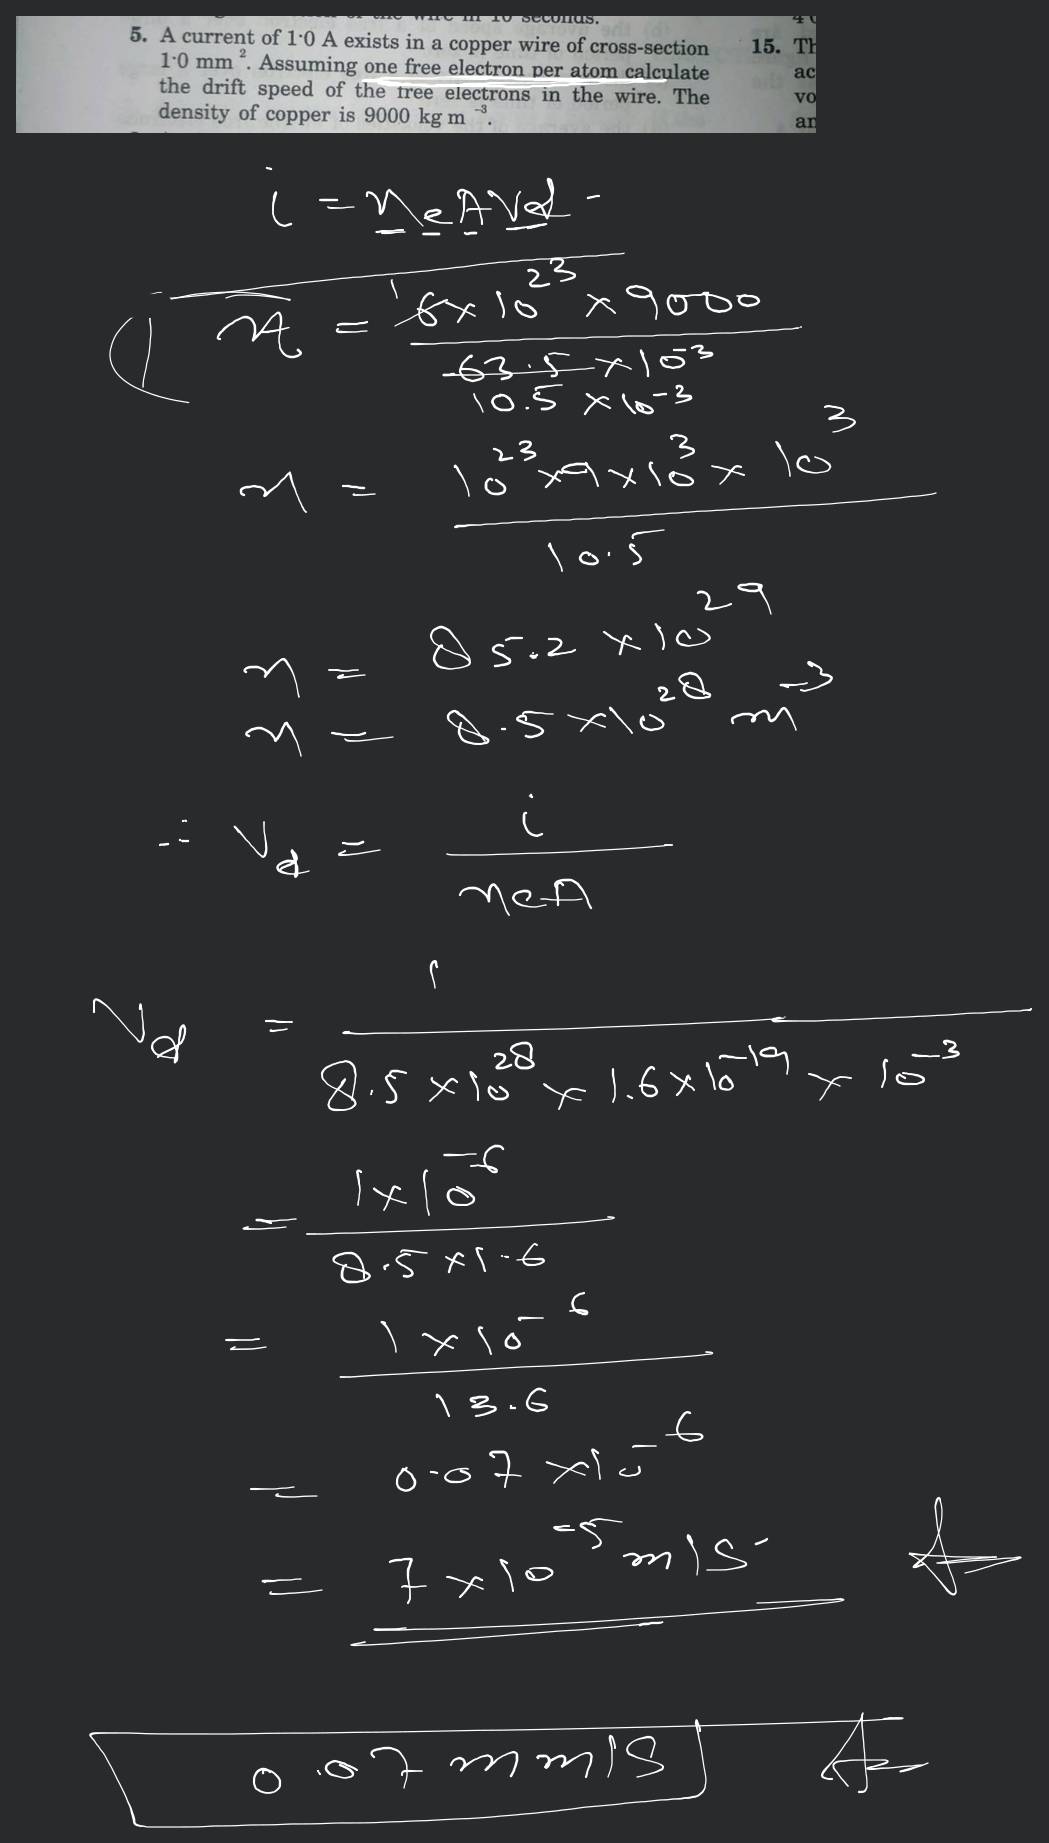 5. A current of 1·0 A exists in a copper wire of cross-section
1·0 mm². Assuming one free electron per atom calculate
the drift speed of the free electrons in the wire. The
density of copper is 9000 kg m⁻³.
15. Th
ac
vo
an
i = neAVd
n = 6×10²³ × 9000 / 63.5 × 10⁻³
10.5 × 10⁻³
n = 10²³ × 9 × 10³ × 10³ / 10.5
n = 85.2 × 10²⁹
n = 8.5 × 10²⁸ m⁻³
∴ Vd = i / neA
Vd = 1 / 8.5 × 10²⁸ × 1.6 × 10⁻¹⁹ × 10⁻³
= 1 × 10⁻⁶ / 8.5 × 1.6
= 1 × 10⁻⁶ / 13.6
= 0.07 × 10⁻⁶
= 7 × 10⁻⁵ m/s
0.07 mm/s